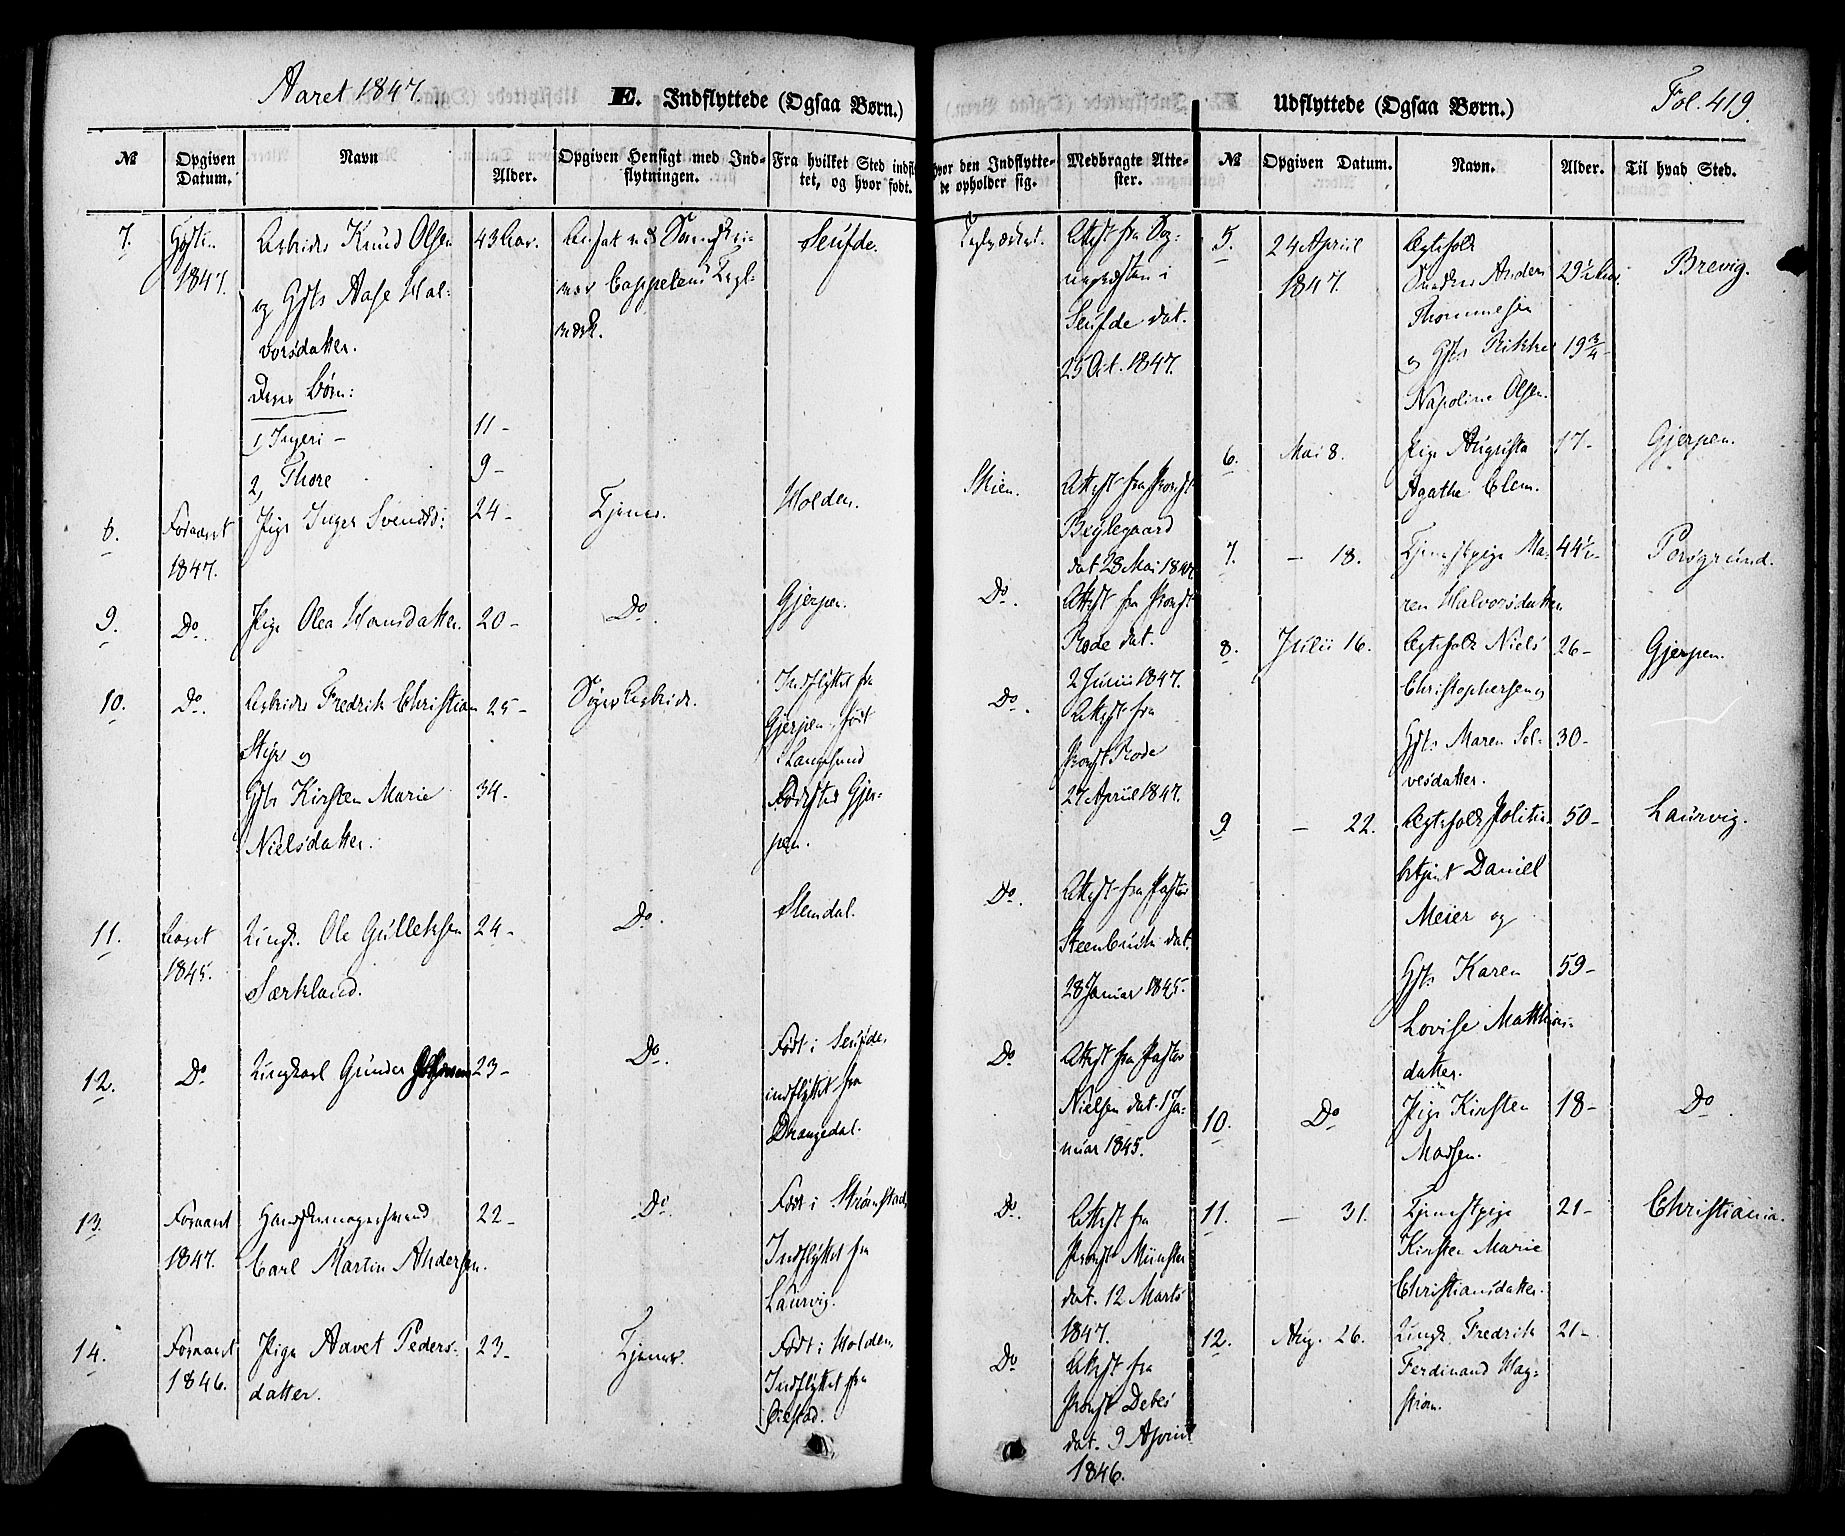 Aaret 1847.
E. Indflyttede (Ogsaa Børn.)
№
Opgiven Datum.
Navn
Alder.
Opgiven Hensigt med Indflytningen.
Fra hvilket Sted indflyttet, og hvor født.
7.
1847.
Arbeider Knud Olsen
og Aase Halvorsdatter.
Deres Børn:
1, Ingeri
2, Thore
43 Aar.
11 -
9 -
Cappelens Teglværk.
Seufde.
8.
Foraaret
1847.
Pige Inger Svendsd:
24 -
Tjener.
Holden.
9.
Do.
Pige Olea Hansdatter.
20 -
Do
Gjerpen.
10.
Do.
Arbeider Fredrik Christian
25 -
Søger Arbeide.
Indflyttet fra
Gjerpen, født
i Langesund
Kirsten Marie
Nielsdatter.
34 -
Født i Gjerpen.
11.
Aaret
1845.
Ungk. Ole Gulleksen
24 -
Særkland.
Do.
Slemdal.
12.
Do
Ungkarl Gunder
23 -
Do.
Født i Seufde,
indflyttet fra
Drangedal.
13.
Foraaret
1847.
Handskemagersvend
Carl Martin Andersen.
22 -
Do.
Født i Strømstad,
Indflyttet fra
Laurvig.
14.
Foraaret
1846.
Pige Advet Pedersdatter.
23 -
Tjener.
Født i Holden,
Indflyttet fra
Fol. 419.
Udflyttede (Ogsaa Børn.)
Hvor den Indflyttede opholder sig.
Medbragte Attester.
№
Opgiven Datum.
Navn.
Alder.
Til hvad Sted.
Teglværket.
Attest fra Sognepræsten i
Seufde dat.
25 Oct. 1847.
Skien.
Attest fra Provst
Beylegaard
dat 28 Mai 1847
Do.
Attest fra Provst
Rode dat.
2 Junii 1847.
Do.
Attest fra
Provst Rode
27 April 1847.
Do.
Attest fra Pastor
Steenbuch dat.
28 Januar 1845.
Do
Attest fra Pastor
Nielsen dat. 1 Januar 1845.
Do.
Attest fra
Provst Münster
dat. 12 Marts
1847.
Do
Attest fra
Provst Debes
dat. 9 April
1846.
5.
24 April
1847.
Ægtefolk
Anders
Thommesen
29½ Aar.
Brevig.
Rikke
Napoline Olsen.
19¾ -
6.
Mai 8.
Pige Augusta
Agathe Clem.
17 -
Gjerpen.
7.
- 18.
Tjenestpige Maren Halvorsdatter
44½ -
Porsgrund.
8.
Julii 16.
Ægtefolk Niels
Christophersen og
26 -
Gjerpen.
Maren Solvesdatter.
30 -
9
- 22.
Ægtefolk Politibetjent Daniel
Meier og
50 -
Laurvig.
Karen
Lovise Matthiasdatter.
59 -
10.
Do
Pige Kirsten
Madsen.
18 -
Do
11.
- 31.
Tjenestpige
Kirsten Marie
Christiansdatter.
21 -
Christiania.
12.
Aug. 26.
Ungk. Fredrik
Ferdinand Hagstrøm.
21 -